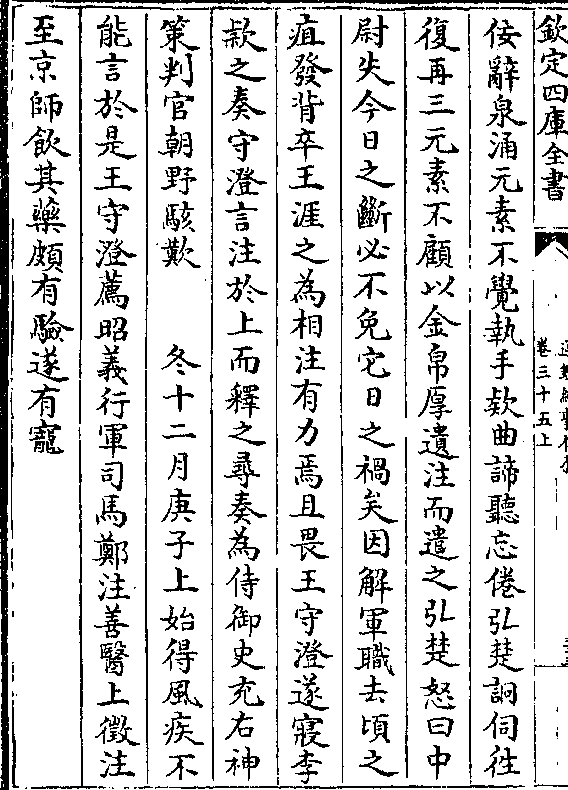 欽定四庫全書
卷三十五上
佞辭泉涌元素不覺執手欵曲諦聽忘倦弘楚詗伺往
復再三元素不顧以金帛厚遺注而遣之弘楚怒曰中
尉失今日之斷必不免它日之禍矣因解軍職去頃之
疽發背卒王涯之為相注有力焉且畏王守澄遂寢李
欵之奏守澄言注於上而釋之尋奏為侍御史充右神
策判官朝野駭歎　　冬十二月庚子上始得風疾不
能言於是王守澄薦昭義行軍司馬鄭注善醫上徵注
至京師飲其藥頗有驗遂有寵